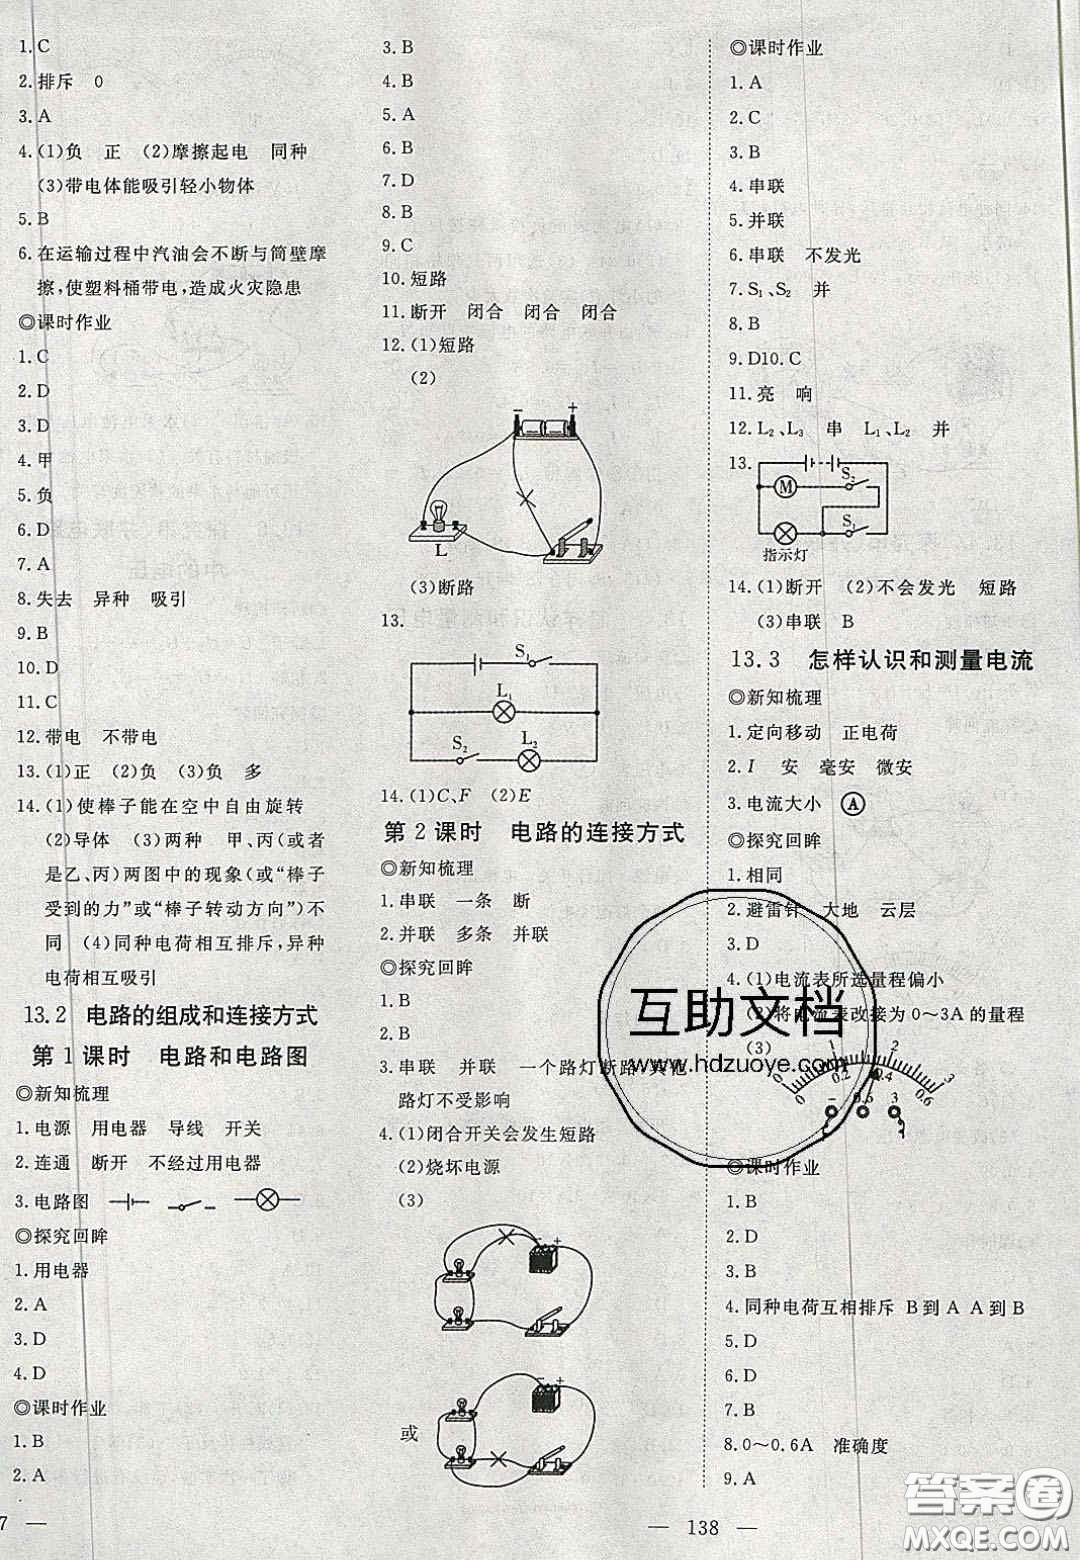 1. C
2. 排斥 0
3. A
4. (1)负 正 (2)摩擦起电 同种
(3)带电体能吸引轻小物体
5. B
6. 在运输过程中汽油会不断与筒壁摩
擦,使塑料桶带电,造成火灾隐患
◎课时作业
1. C
2. D
3. D
4. 甲
5. 负
6. D
7. A
8. 失去 异种 吸引
9. B
10. D
11. C
12. 带电 不带电
13. (1)正 (2)负 (3)负 多
14. (1)使棒子能在空中自由旋转
(2)导体 (3)两种 甲、丙(或者
是乙、丙)两图中的现象(或“棒子
受到的力”或“棒子转动方向”)不
同 (4)同种电荷相互排斥,异种
电荷相互吸引
13.2 电路的组成和连接方式
第1课时 电路和电路图
◎新知梳理
1. 电源 用电器 导线 开关
2. 连通 断开 不经过用电器
3. 电路图
◎探究回眸
1. 用电器
2. A
3. D
4. D
◎课时作业
1. B
2. A
7 —
3. B
4. B
5. A
6. B
7. D
8. B
9. C
10. 短路
11. 断开 闭合 闭合 闭合
12. (1)短路
(2)
− +
L
(3)断路
13.
S₁
L₁
S₂ L₂
14. (1)C、F (2)E
第2课时 电路的连接方式
◎新知梳理
1. 串联 一条 断
2. 并联 多条 并联
◎探究回眸
1. B
2. B
3. 串联 并联 一个路灯断路,其他
路灯不受影响
4. (1)闭合开关会发生短路
(2)烧坏电源
(3)
− +
− +
或
— 138 —
◎课时作业
1. A
2. C
3. B
4. 串联
5. 并联
6. 串联 不发光
7. S₁、S₂ 并
8. B
9. D10. C
11. 亮 响
12. L₂、L₃ 串 L₁、L₂ 并
13.
S₂
M
S₁
指示灯
14. (1)断开 (2)不会发光 短路
(3)串联 B
13.3 怎样认识和测量电流
◎新知梳理
1. 定向移动 正电荷
2. I 安 毫安 微安
3. 电流大小 Ⓐ
◎探究回眸
1. 相同
2. 避雷针 大地 云层
3. D
4. (1)电流表所选量程偏小
(2)将电流表改接为0～3A的量程
(3)
0 1 2 3
0 0.2 0.4 0.6
− 0.6 3
◎课时作业
1. B
2. D
3. B
4. 同种电荷互相排斥 B到A A到B
5. D
6. D
7. B
8. 0～0.6A 准确度
9. A
互助文档
www.hdzuoye.com
答案圈
MXQE.COM